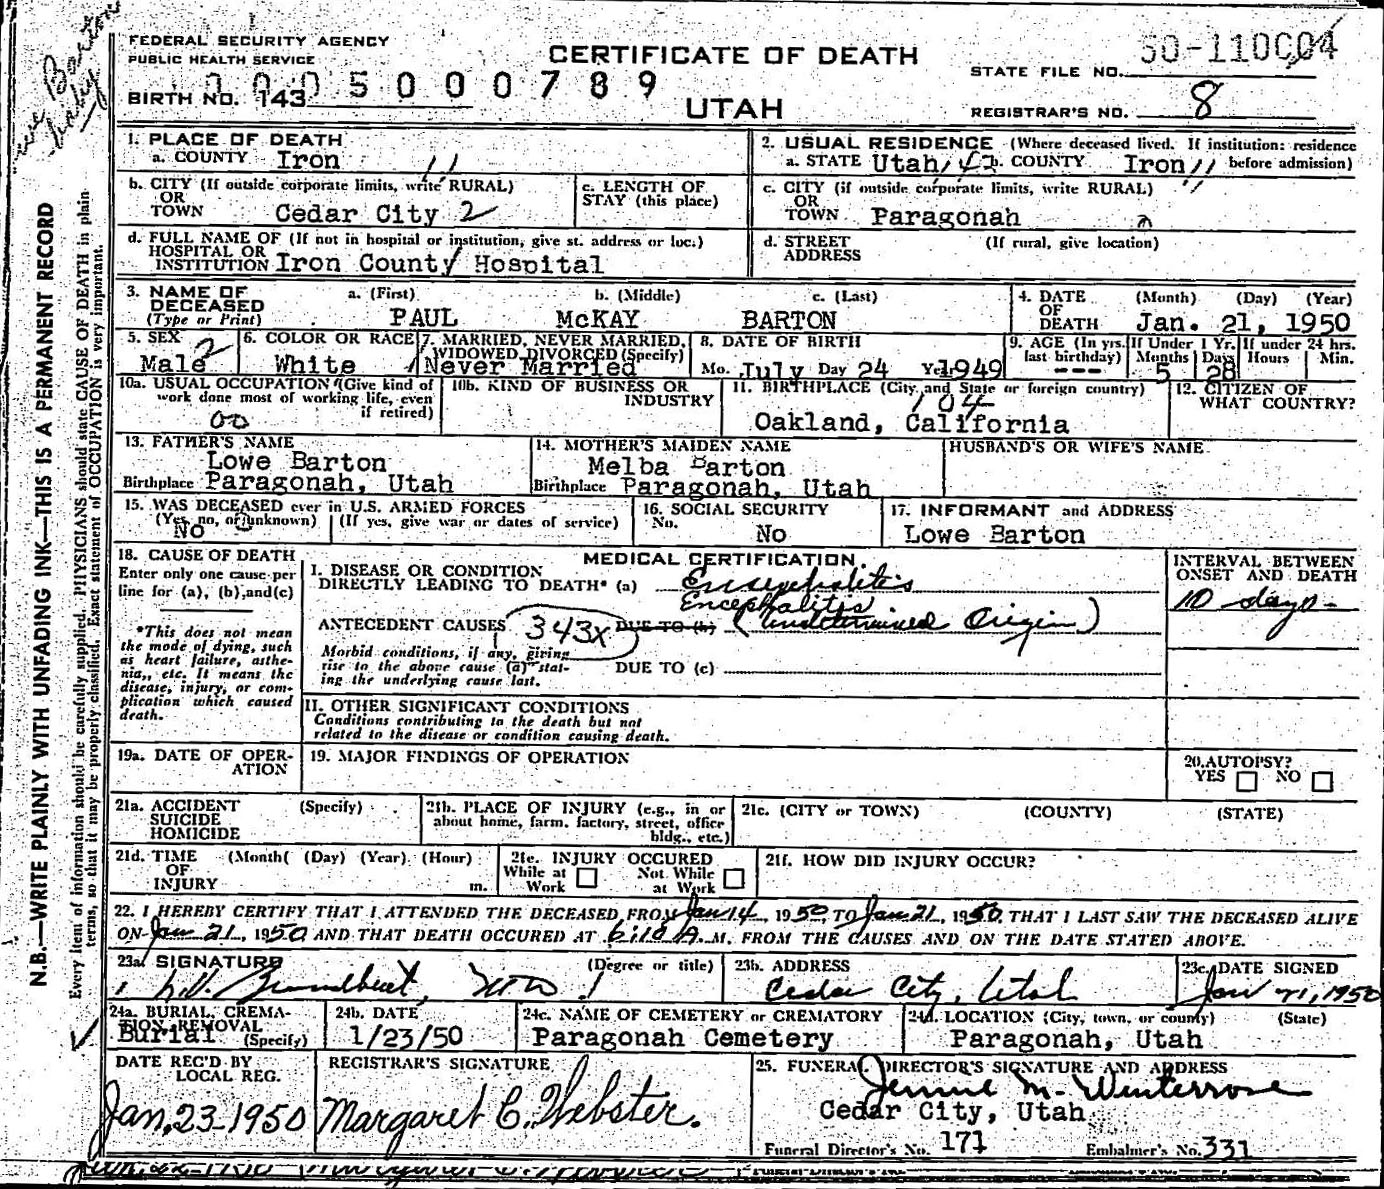 FEDERAL SECURITY AGENCY
PUBLIC HEALTH SERVICE
CERTIFICATE OF DEATH
UTAH
STATE FILE NO. 50-110004
REGISTRAR'S NO. 8
0005000789
BIRTH NO. 143
N.B.—WRITE PLAINLY WITH UNFADING INK—THIS IS A PERMANENT RECORD
Every item of information should be carefully supplied. PHYSICIANS should state CAUSE OF DEATH in plain
terms, so that it may be properly classified. Exact statement of OCCUPATION is very important.
1. PLACE OF DEATH
a. COUNTY Iron 11
2. USUAL RESIDENCE (Where deceased lived. If institution: residence
a. STATE Utah 43 b. COUNTY Iron 11 before admission)
b. CITY (If outside corporate limits, write RURAL)
OR
TOWN Cedar City 2
c. LENGTH OF
STAY (this place)
c. CITY (if outside corporate limits, write RURAL)
OR
TOWN Paragonah
d. FULL NAME OF (If not in hospital or institution, give st. address or loc.)
HOSPITAL OR
INSTITUTION Iron County Hospital
d. STREET (If rural, give location)
ADDRESS
3. NAME OF DECEASED
(Type or Print)
a. (First) b. (Middle) c. (Last)
PAUL McKAY BARTON
4. DATE OF DEATH
(Month) (Day) (Year)
Jan. 21, 1950
5. SEX
Male 2
6. COLOR OR RACE
White
7. MARRIED, NEVER MARRIED,
WIDOWED, DIVORCED (Specify)
1 Never Married
8. DATE OF BIRTH
Mo. July Day 24 Year 1949
9. AGE (In yrs. last birthday)
---
If Under 1 Yr.
Months Days
5 28
If under 24 hrs.
Hours Min.
10a. USUAL OCCUPATION (Give kind of
work done most of working life, even
if retired)
00
10b. KIND OF BUSINESS OR
INDUSTRY
11. BIRTHPLACE (City and State or foreign country)
104
Oakland, California
12. CITIZEN OF
WHAT COUNTRY?
13. FATHER'S NAME
Lowe Barton
Birthplace Paragonah, Utah
14. MOTHER'S MAIDEN NAME
Melba Barton
Birthplace Paragonah, Utah
HUSBAND'S OR WIFE'S NAME
15. WAS DECEASED ever in U.S. ARMED FORCES
(Yes, no, or unknown) (If yes, give war or dates of service)
No
16. SOCIAL SECURITY
No.
No
17. INFORMANT and ADDRESS
Lowe Barton
18. CAUSE OF DEATH
Enter only one cause per
line for (a), (b), and (c)
*This does not mean
the mode of dying, such
as heart failure, asthe-
nia,, etc. It means the
disease, injury, or com-
plication which caused
death.
MEDICAL CERTIFICATION
I. DISEASE OR CONDITION
DIRECTLY LEADING TO DEATH* (a) Encephalitis
Encephalitis
ANTECEDENT CAUSES 343X DUE TO (b) (Undetermined Origin)
Morbid conditions, if any, giving
rise to the above cause (a) stat-
ing the underlying cause last.
DUE TO (c)
INTERVAL BETWEEN
ONSET AND DEATH
10 days-
II. OTHER SIGNIFICANT CONDITIONS
Conditions contributing to the death but not
related to the disease or condition causing death.
19a. DATE OF OPER-
ATION
19. MAJOR FINDINGS OF OPERATION
20. AUTOPSY?
YES NO
21a. ACCIDENT (Specify)
SUICIDE
HOMICIDE
21b. PLACE OF INJURY (e.g., in or
about home, farm, factory, street, office
bldg., etc.)
21c. (CITY or TOWN) (COUNTY) (STATE)
21d. TIME (Month( (Day) (Year) (Hour)
OF
INJURY m.
21e. INJURY OCCURED
While at Work
Not While at Work
21f. HOW DID INJURY OCCUR?
22. I HEREBY CERTIFY THAT I ATTENDED THE DECEASED FROM Jan 14, 1950, TO Jan 21, 1950, THAT I LAST SAW THE DECEASED ALIVE
ON Jan 21, 1950 AND THAT DEATH OCCURED AT 6:10 A. M. FROM THE CAUSES AND ON THE DATE STATED ABOVE.
23a. SIGNATURE (Degree or title)
23b. ADDRESS
Cedar City, Utah
23c. DATE SIGNED
Jan 21, 1950
24a. BURIAL, CREMA-
TION, REMOVAL
Burial (Specify)
24b. DATE
1/23/50
24c. NAME OF CEMETERY or CREMATORY
Paragonah Cemetery
24d. LOCATION (City, town, or county) (State)
Paragonah, Utah
DATE REC'D BY
LOCAL REG.
Jan. 23-1950
REGISTRAR'S SIGNATURE
Margaret C. Webster.
25. FUNERAL DIRECTOR'S SIGNATURE AND ADDRESS
Jennie M. Winterrose
Cedar City, Utah
Funeral Director's No. 171 Embalmer's No. 331